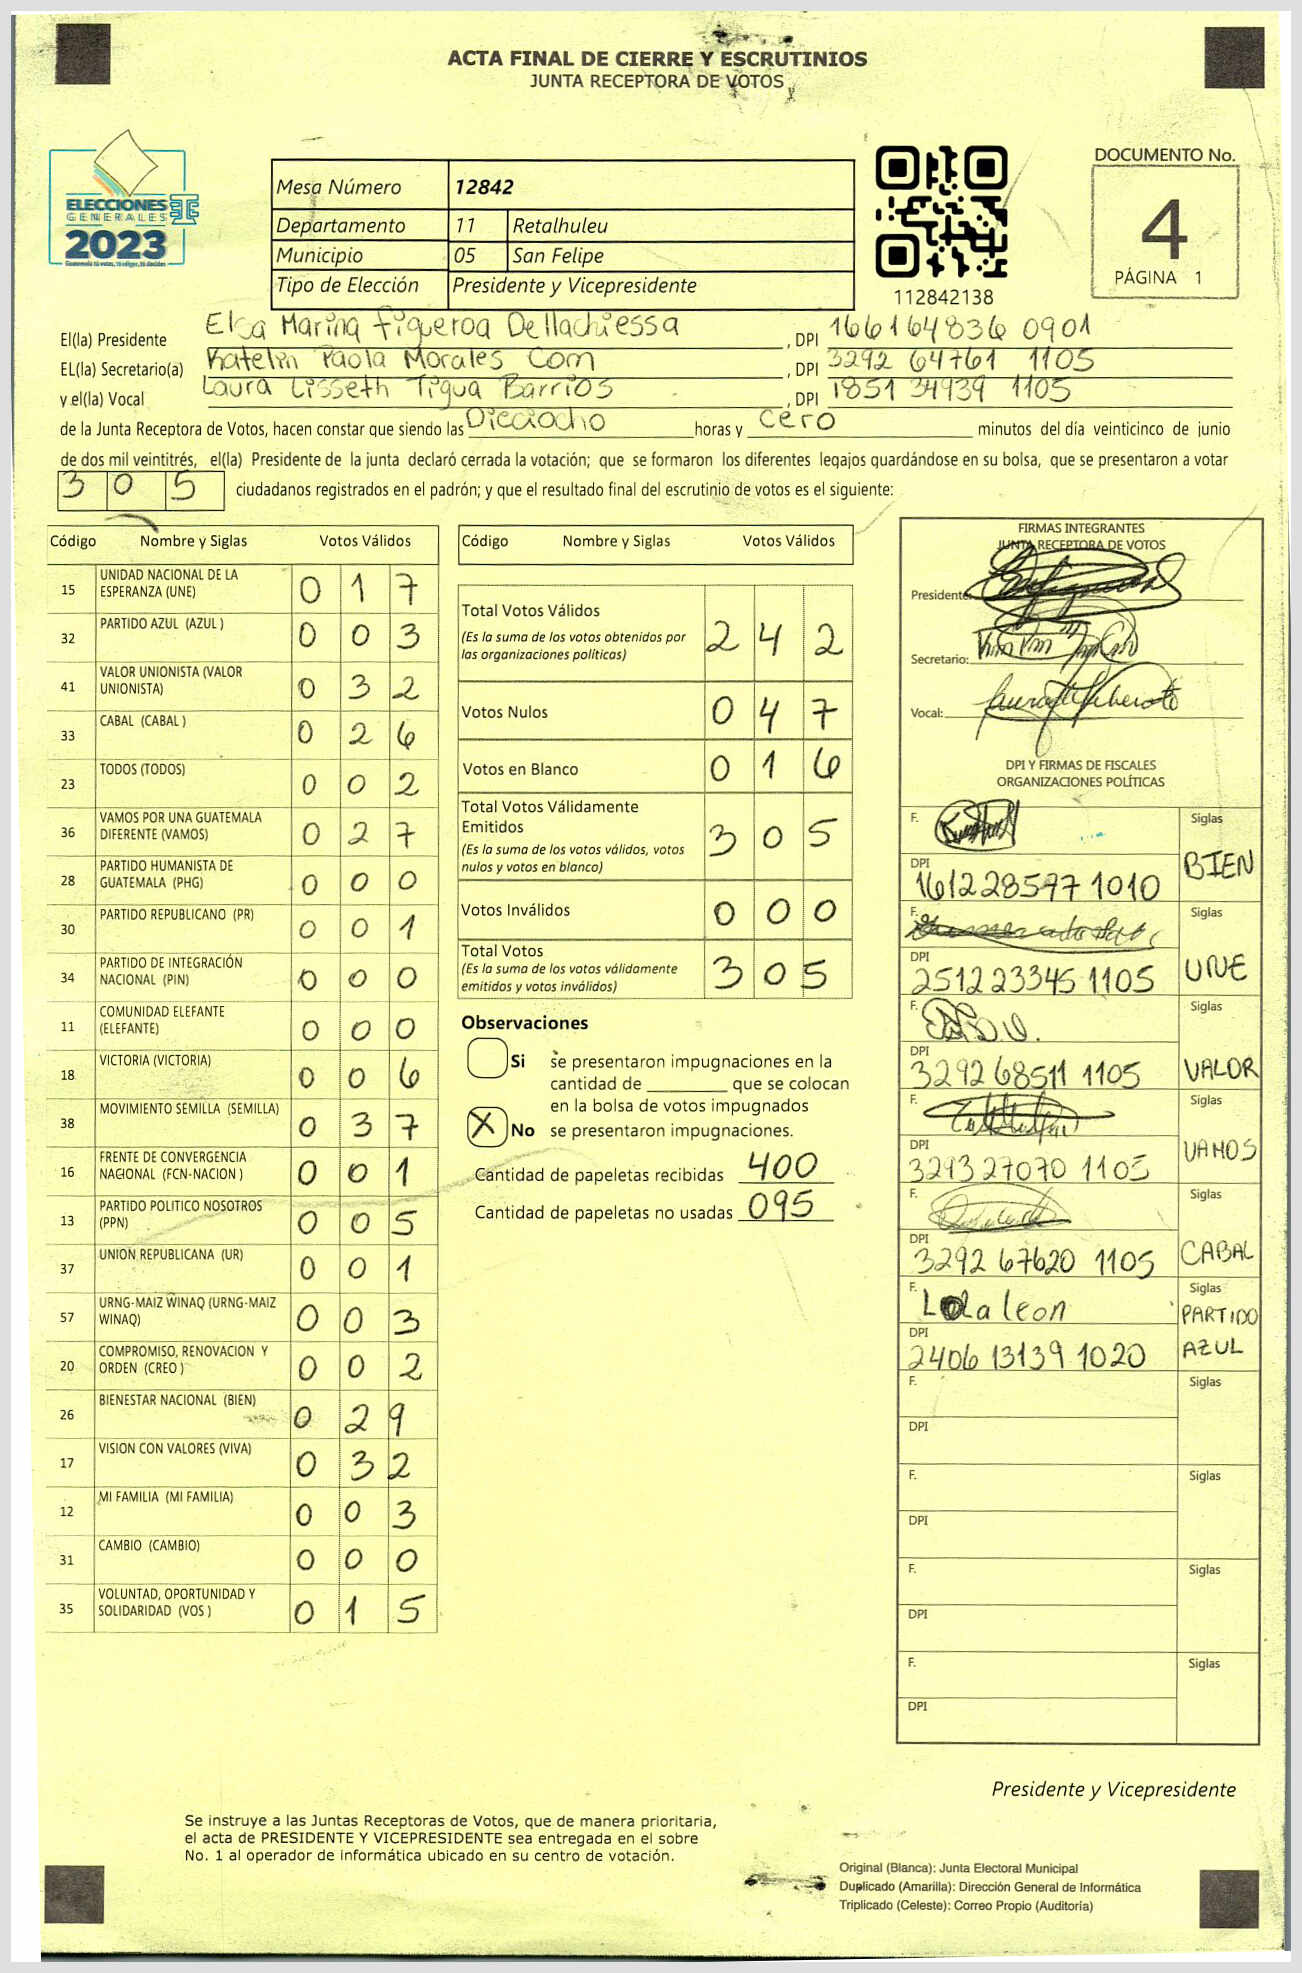 ACTA FINAL DE CIERRE Y ESCRUTINIOS
JUNTA RECEPTORA DE VOTOS
ELECCIONES
GENERALES
2023
Mesa Número 12842
Departamento 11 Retalhuleu
Municipio 05 San Felipe
Tipo de Elección Presidente y Vicepresidente
112842138
DOCUMENTO No.
4
PÁGINA 1
El(la) Presidente Elsa Marina figueroa Dellachiessa, DPI 166164836 0901
EL(la) Secretario(a) Katelin Paola Morales Com, DPI 3292 64761 1105
y el(la) Vocal Laura Lisseth Tigua Barrios, DPI 1851 34939 1105
de la Junta Receptora de Votos, hacen constar que siendo las Dieciocho horas y cero minutos del día veinticinco de junio
de dos mil veintitrés, el(la) Presidente de la junta declaró cerrada la votación; que se formaron los diferentes legajos guardándose en su bolsa, que se presentaron a votar
305 ciudadanos registrados en el padrón; y que el resultado final del escrutinio de votos es el siguiente:
Código Nombre y Siglas Votos Válidos
15 UNIDAD NACIONAL DE LA ESPERANZA (UNE) 017
32 PARTIDO AZUL (AZUL ) 003
41 VALOR UNIONISTA (VALOR UNIONISTA) 032
33 CABAL (CABAL ) 026
23 TODOS (TODOS) 002
36 VAMOS POR UNA GUATEMALA DIFERENTE (VAMOS) 027
28 PARTIDO HUMANISTA DE GUATEMALA (PHG) 000
30 PARTIDO REPUBLICANO (PR) 001
34 PARTIDO DE INTEGRACIÓN NACIONAL (PIN) 000
11 COMUNIDAD ELEFANTE (ELEFANTE) 000
18 VICTORIA (VICTORIA) 006
38 MOVIMIENTO SEMILLA (SEMILLA) 037
16 FRENTE DE CONVERGENCIA NACIONAL (FCN-NACION ) 001
13 PARTIDO POLITICO NOSOTROS (PPN) 005
37 UNION REPUBLICANA (UR) 001
57 URNG-MAIZ WINAQ (URNG-MAIZ WINAQ) 003
20 COMPROMISO, RENOVACION Y ORDEN (CREO ) 002
26 BIENESTAR NACIONAL (BIEN) 029
17 VISION CON VALORES (VIVA) 032
12 MI FAMILIA (MI FAMILIA) 003
31 CAMBIO (CAMBIO) 000
35 VOLUNTAD, OPORTUNIDAD Y SOLIDARIDAD (VOS ) 015
Código Nombre y Siglas Votos Válidos
Total Votos Válidos 242
(Es la suma de los votos obtenidos por
las organizaciones políticas)
Votos Nulos 047
Votos en Blanco 016
Total Votos Válidamente
Emitidos 305
(Es la suma de los votos válidos, votos
nulos y votos en blanco)
Votos Inválidos 000
Total Votos 305
(Es la suma de los votos válidamente
emitidos y votos inválidos)
Observaciones
Si se presentaron impugnaciones en la
cantidad de ________ que se colocan
en la bolsa de votos impugnados
X No se presentaron impugnaciones.
Cantidad de papeletas recibidas 400
Cantidad de papeletas no usadas 095
FIRMAS INTEGRANTES
JUNTA RECEPTORA DE VOTOS
Presidente:
Secretario:
Vocal:
DPI Y FIRMAS DE FISCALES
ORGANIZACIONES POLÍTICAS
F. Siglas
DPI 161228597 1010 BIEN
F. Siglas
DPI 251223345 1105 UNE
F. Siglas
DPI 3292 68511 1105 VALOR
F. Siglas
DPI 3293 27070 1105 VAMOS
F. Siglas
DPI 3292 67620 1105 CABAL
F. Lola leon Siglas
DPI 2406 13139 1020 PARTIDO AZUL
F. Siglas
DPI
F. Siglas
DPI
F. Siglas
DPI
F. Siglas
DPI
Presidente y Vicepresidente
Se instruye a las Juntas Receptoras de Votos, que de manera prioritaria,
el acta de PRESIDENTE Y VICEPRESIDENTE sea entregada en el sobre
No. 1 al operador de informática ubicado en su centro de votación.
Original (Blanca): Junta Electoral Municipal
Duplicado (Amarilla): Dirección General de Informática
Triplicado (Celeste): Correo Propio (Auditoría)